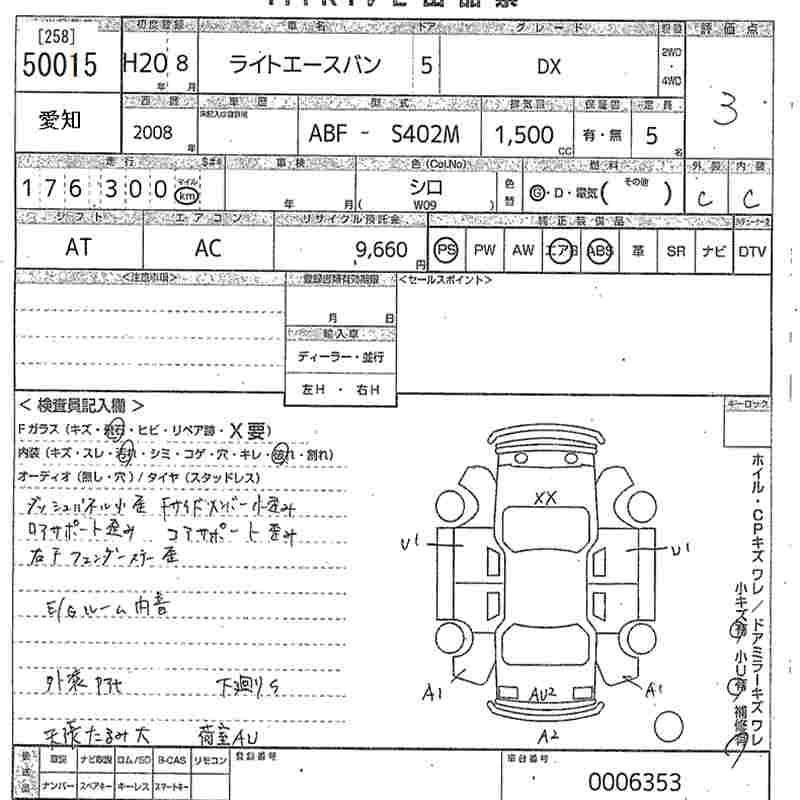 [258]
50015
愛知
初度登録
H20 8
年 月
車名
ライトエースバン
ドア
5
グレード
DX
2WD
・
4WD
評価点
3
西暦
2008
年
車歴
型式
ABF - S402M
排気量
1,500
CC
保証書
有・無
定員
5
名
走行
176,300
マイル
km
車検
年 月
色(Col.No)
シロ
( W09 )
色替
燃料
G・D・電気( その他 )
外装
C
内装
C
シフト
AT
エアコン
AC
リサイクル預託金
9,660
円
純正装備品
PS PW AW エアB ABS 革 SR ナビ DTV
<注意事項>
登録書類有効期限
月 日
輸入車
ディーラー・並行
左H ・ 右H
<セールスポイント>
キーロック
<検査員記入欄>
Fガラス(キズ・飛石・ヒビ・リペア跡・X要)
内装(キズ・スレ・汚れ・シミ・コゲ・穴・キレ・破れ・割れ)
オーディオ(無し・穴)/タイヤ(スタッドレス)
ダッシュパネル小歪 Fサイドメンバー小歪み
ロアサポート歪み コアサポート歪み
右Fフェンダーステー歪
E/Gルーム内音
下廻りS
天張たるみ大 荷室AU
XX
U1
U1
A1
AU2
A1
A2
ホイル・CPキズワレ/ドアミラーキズワレ
小キズ有 小U有 補修有
後送品
取説 ナビ取説 ロム/SD B-CAS リモコン
ナンバー スペアキー キーレス スマートキー
登録番号
車台番号
0006353